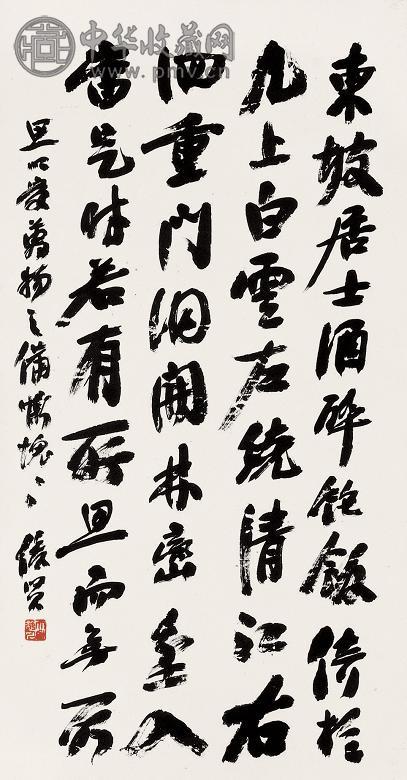 中华收藏网
www.pmv.cn
東坡居士酒醉飽飯倚於
几上白雲左繞清江右
洄重門洞開林巒坌入
當是時若有所思而無所
思以受萬物之備慚愧